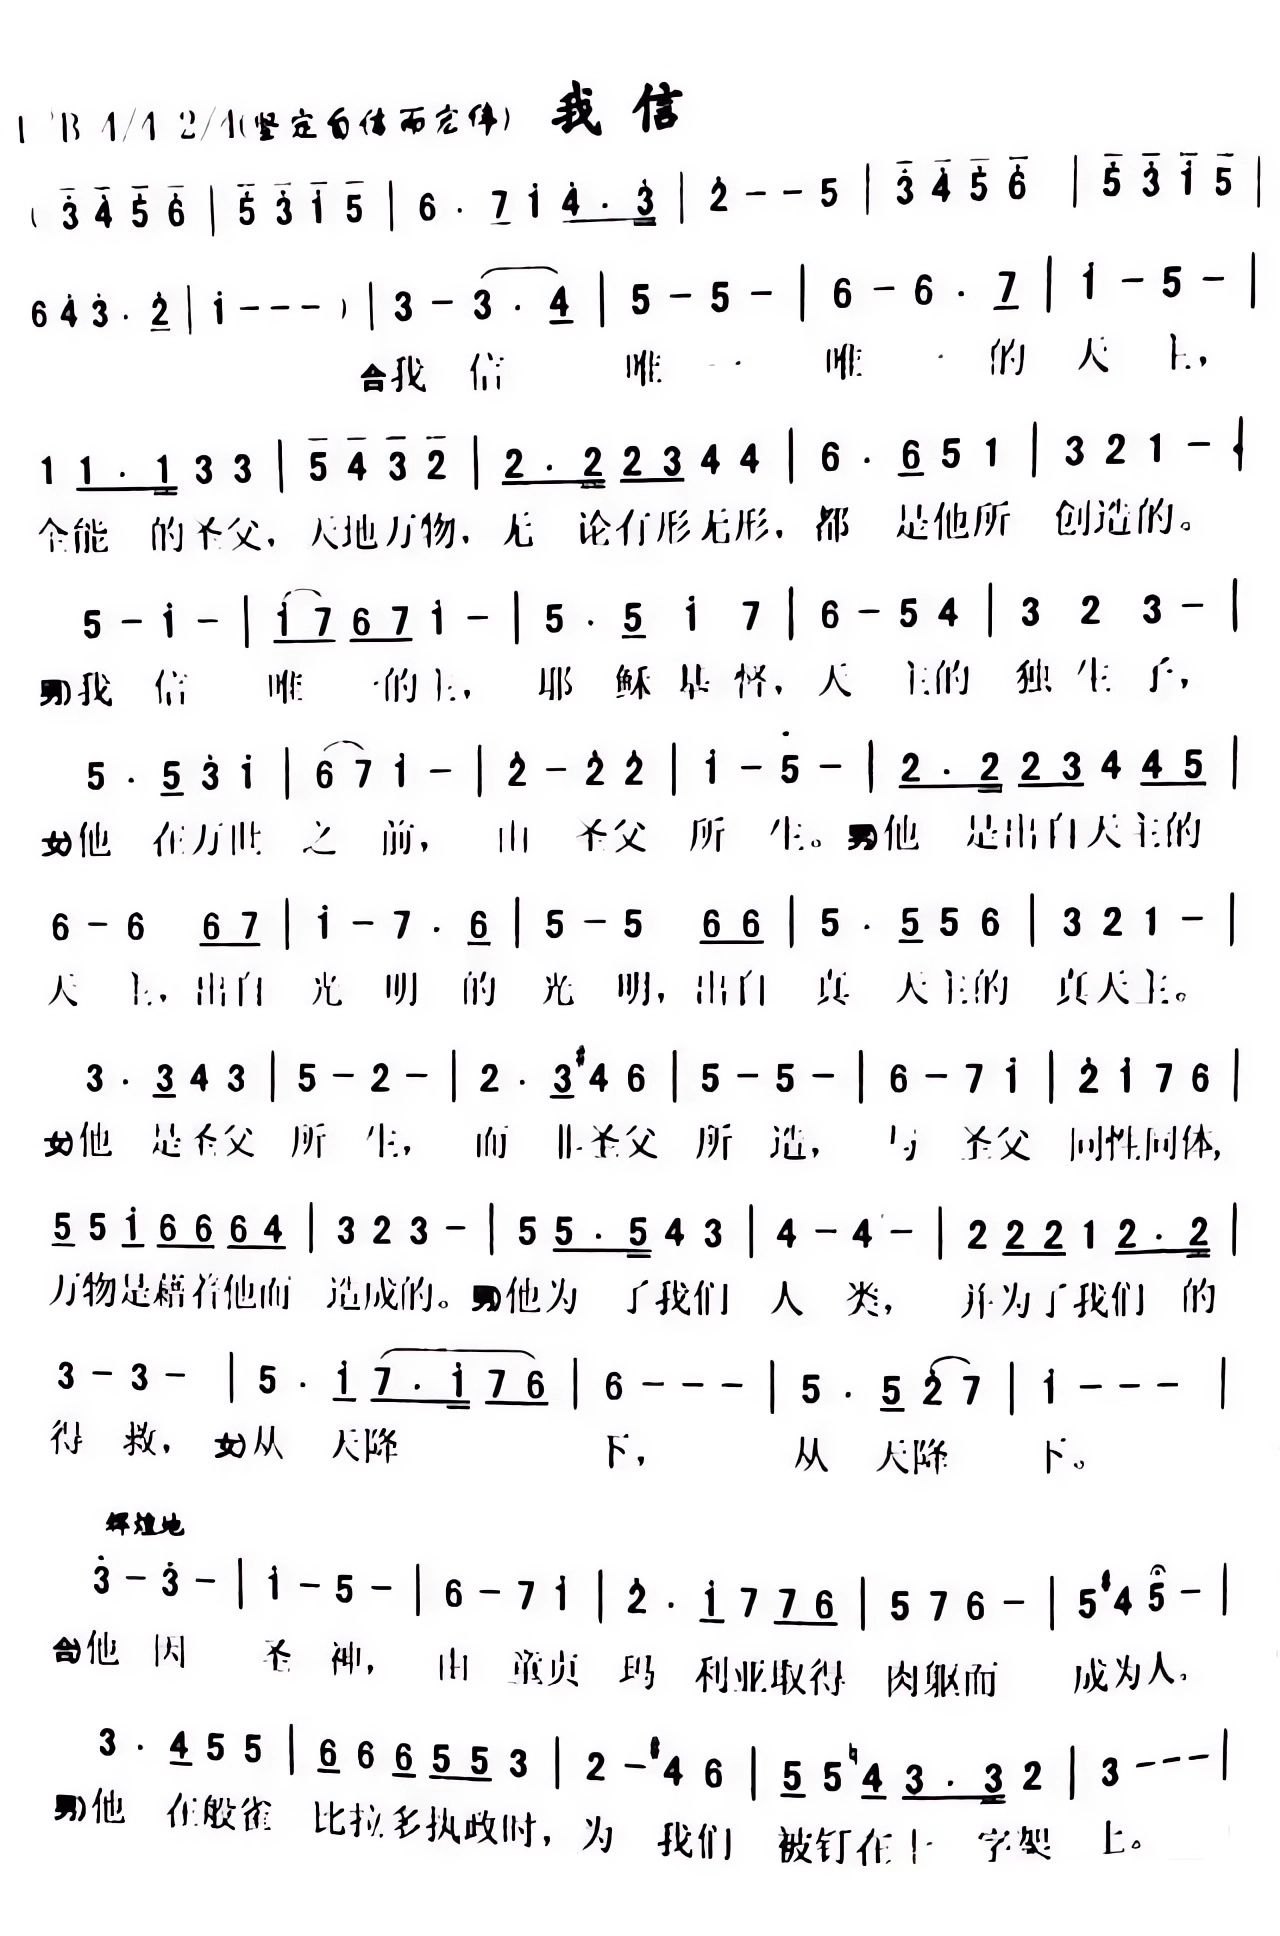 我信
1=♭B 4/4 2/4(坚定自信而宏伟)
( 3 4 5 6 | 5 3 1 5 | 6 . 7 1 4 . 3 | 2 - - 5 | 3 4 5 6 | 5 3 1 5 |
6 4 3 . 2 | 1 - - - ) | 3 - 3 . 4 | 5 - 5 - | 6 - 6 . 7 | 1 - 5 - |
合我信 唯一 唯一的天主,
1 1 . 1 3 3 | 5 4 3 2 | 2 . 2 2 3 4 4 | 6 . 6 5 1 | 3 2 1 - |
全能的圣父, 天地万物, 无论有形无形, 都是他所创造的。
5 - 1 - | 1 7 6 7 1 - | 5 . 5 1 7 | 6 - 5 4 | 3 2 3 - |
男)我信唯一的主, 耶稣基督, 天主的独生子,
5 . 5 3 1 | 6 7 1 - | 2 - 2 2 | 1 - 5 - | 2 . 2 2 3 4 4 5 |
女)他在万世之前, 由圣父所生。男)他是出自天主的
6 - 6 6 7 | 1 - 7 . 6 | 5 - 5 6 6 | 5 . 5 5 6 | 3 2 1 - |
天主, 出自光明的光明, 出自真天主的真天主。
3 . 3 4 3 | 5 - 2 - | 2 . 3 #4 6 | 5 - 5 - | 6 - 7 1 | 2 1 7 6 |
女)他是圣父所生, 而非圣父所造, 与圣父同性同体,
5 5 1 6 6 6 4 | 3 2 3 - | 5 5 . 5 4 3 | 4 - 4 - | 2 2 2 1 2 . 2 |
万物是藉着他而造成的。男)他为了我们人类, 并为了我们的
3 - 3 - | 5 . 1 7 . 1 7 6 | 6 - - - | 5 . 5 2 7 | 1 - - - |
得救, 女)从天降下, 从天降下。
辉煌地
3 - 3 - | 1 - 5 - | 6 - 7 1 | 2 . 1 7 7 6 | 5 7 6 - | 5 #4 5 - |
合)他因圣神, 由童贞玛利亚取得肉躯而成为人。
3 . 4 5 5 | 6 6 6 5 5 3 | 2 - #4 6 | 5 5 ♮4 3 . 3 2 | 3 - - - |
男)他在般雀比拉多执政时, 为我们被钉在十字架上。